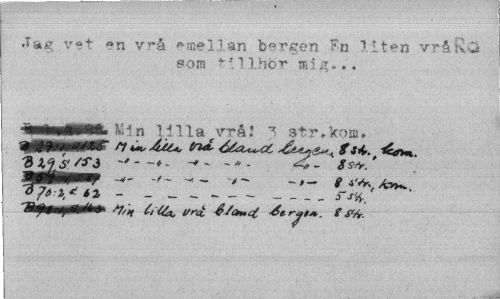 Jag vet en vrå emellan bergen En liten vrå
som tillhör mig...
Min lilla vrå! 3 str.kom.
Min lilla vrå bland bergen. 8 str., kom.
B 29, s 153 -"- -"- -"- -"- -"- 8 str.
-"- -"- -"- -"- -"- 8 str., kom.
70:2, s 62 - - - - - - 5 str.
Min lilla vrå bland bergen. 8 str.